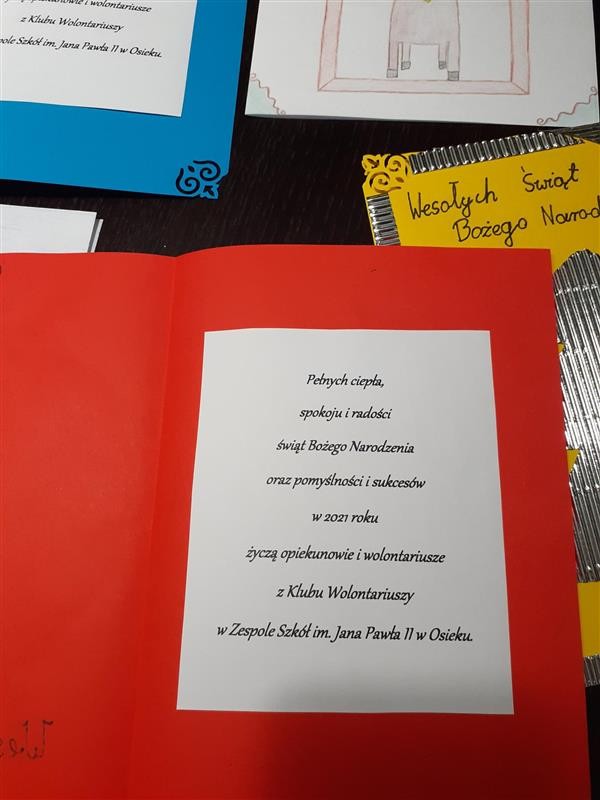 opiekunowie i wolontariusze
z Klubu Wolontariuszy
Zespole Szkół im. Jana Pawła II w Osieku.
Wesołych Świąt
Bożego Narod
Pełnych ciepła,
spokoju i radości
świąt Bożego Narodzenia
oraz pomyślności i sukcesów
w 2021 roku
życzą opiekunowie i wolontariusze
z Klubu Wolontariuszy
w Zespole Szkół im. Jana Pawła II w Osieku.